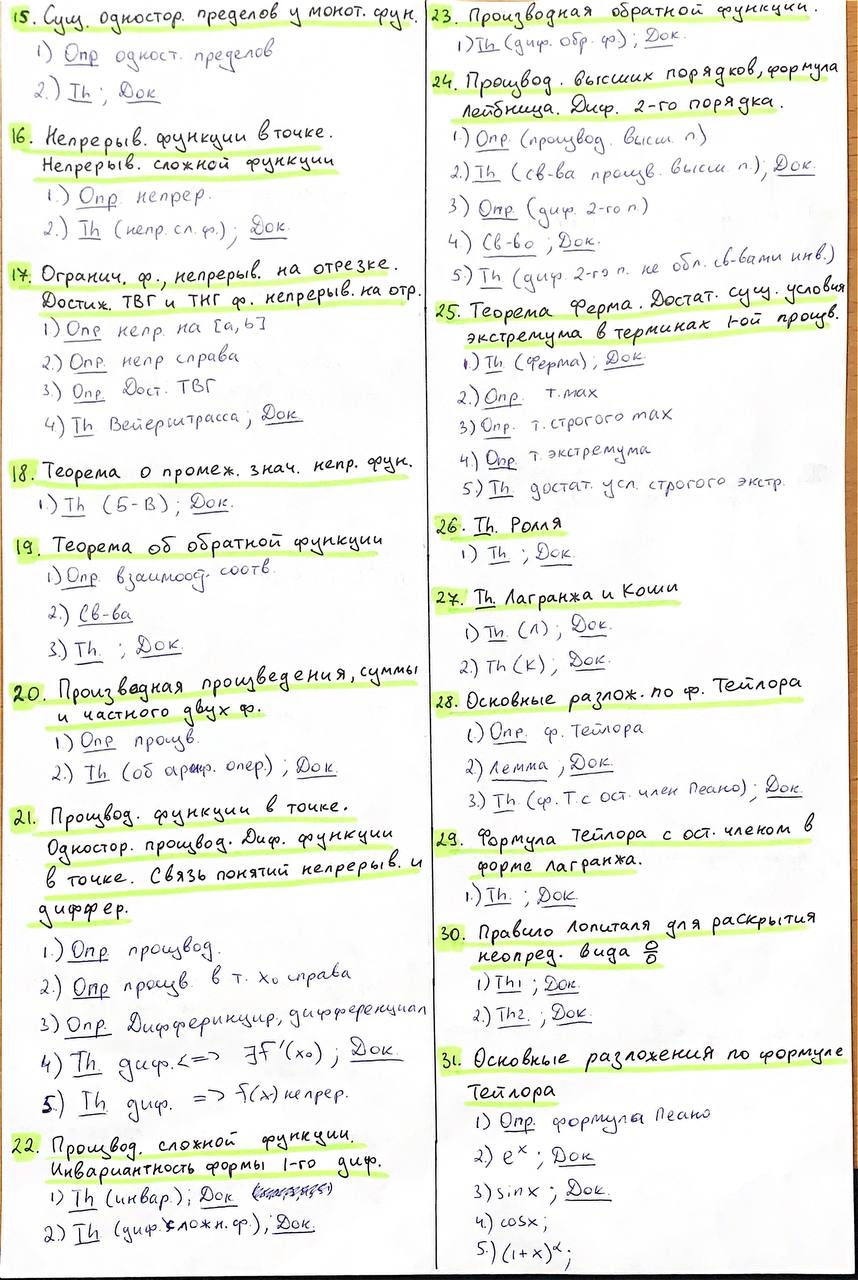 15. Сущ. одностор. пределов у монот. фун.
1) Опр одност. пределов
2.) Th ; Док
16. Непрерыв. функции в точке.
Непрерыв. сложной функции
1.) Опр непрер.
2.) Th (непр. сл. ф.) ; Док.
17. Огранич. ф., непрерыв. на отрезке.
Достиж. ТВГ и ТНГ ф. непрерыв. на отр.
1) Опр непр. на [a, b]
2.) Опр непр справа
3.) Опр Дост. ТВГ
4) Th Вейерштрасса ; Док
18. Теорема о промеж. знач. непр. фун.
1.) Th (Б-В) ; Док.
19. Теорема об обратной функции
1) Опр взаимоод. соотв.
2.) Св-ва
3.) Th. ; Док
20. Производная произведения, суммы
и частного двух ф.
1) Опр произв.
2.) Th (об ариф. опер.) ; Док
21. Производ. функции в точке.
Одностор. производ. Диф. функции
в точке. Связь понятий непрерыв. и
диффер.
1.) Опр производ.
2.) Опр произв. в т. x₀ справа
3) Опр. Дифферинцир, дифференциал
4) Th диф. <=> ∃f'(x₀) ; Док.
5.) Th диф. => f(x) непрер.
22. Производ. сложной функции.
Инвариантность формы 1-го диф.
1) Th (инвар.) ; Док
2.) Th (диф. сложн. ф.) ; Док.
23. Производная обратной функции.
1) Th (диф. обр. ф.) ; Док.
24. Производ. высших порядков, формула
Лейбница. Диф. 2-го порядка.
1.) Опр. (производ. высш. п)
2.) Th (св-ва произв. высш. п.) ; Док.
3) Опр (диф. 2-го п.)
4) Св-во ; Док.
5.) Th (диф. 2-го п. не обл. св-вами инв.)
25. Теорема Ферма. Достат. сущ. условия
экстремума в терминах 1-ой произв.
1.) Th (Ферма) ; Док
2.) Опр. т. max
3) Опр. т. строгого max
4.) Опр. т. экстремума
5.) Th достат. усл. строгого экстр.
26. Th. Ролля
1) Th ; Док.
27. Th. Лагранжа и Коши
1) Th. (Л) ; Док.
2.) Th (К) ; Док.
28. Основные разлож. по ф. Тейлора
1.) Опр. ф. Тейлора
2) Лемма ; Док.
3.) Th. (ф. Т. с ост. член Пеано) ; Док.
29. Формула Тейлора с ост. членом в
форме Лагранжа.
1.) Th. ; Док
30. Правило Лопиталя для раскрытия
неопред. вида 0/0
1) Th1 ; Док.
2.) Th2. ; Док.
31. Основные разложения по формуле
Тейлора
1) Опр. формула Пеано
2) eˣ ; Док
3) sinx ; Док.
4.) cosx ;
5.) (1+x)^α ;